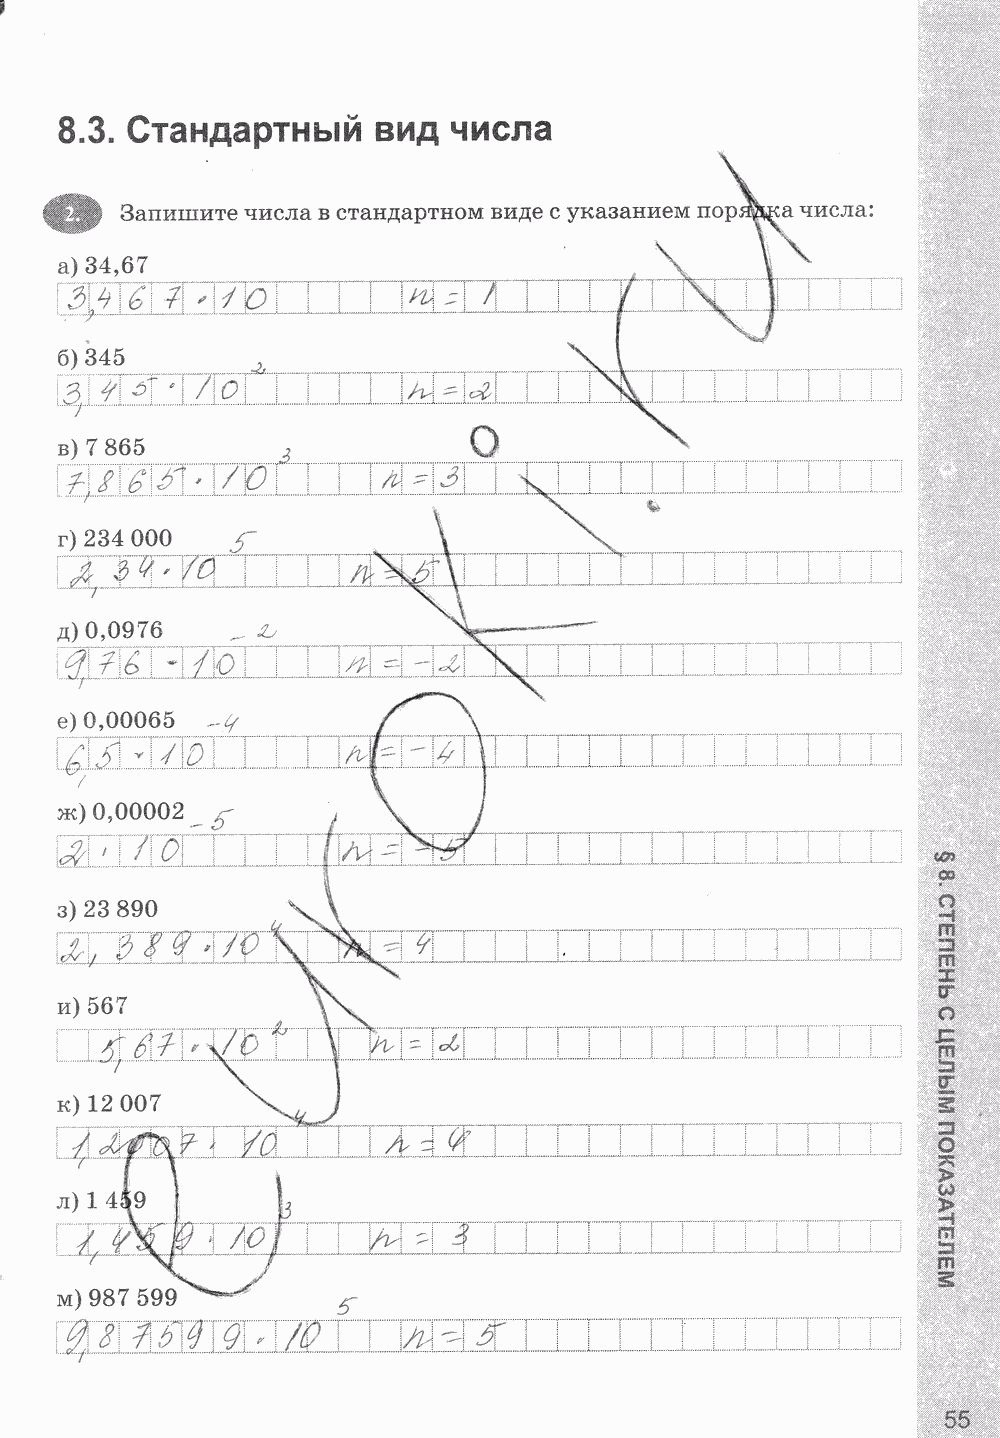 8.3. Стандартный вид числа
2. Запишите числа в стандартном виде с указанием порядка числа:
а) 34,67
3,467 · 10 n = 1
б) 345
3,45 · 10² n = 2
в) 7 865
7,865 · 10³ n = 3
г) 234 000
2,34 · 10⁵ n = 5
д) 0,0976
9,76 · 10⁻² n = -2
е) 0,00065
6,5 · 10⁻⁴ n = -4
ж) 0,00002
2 · 10⁻⁵ n = -5
з) 23 890
2,389 · 10⁴ n = 4
и) 567
5,67 · 10² n = 2
к) 12 007
1,2007 · 10⁴ n = 4
л) 1 459
1,459 · 10³ n = 3
м) 987 599
9,87599 · 10⁵ n = 5
§ 8. СТЕПЕНЬ С ЦЕЛЫМ ПОКАЗАТЕЛЕМ
55